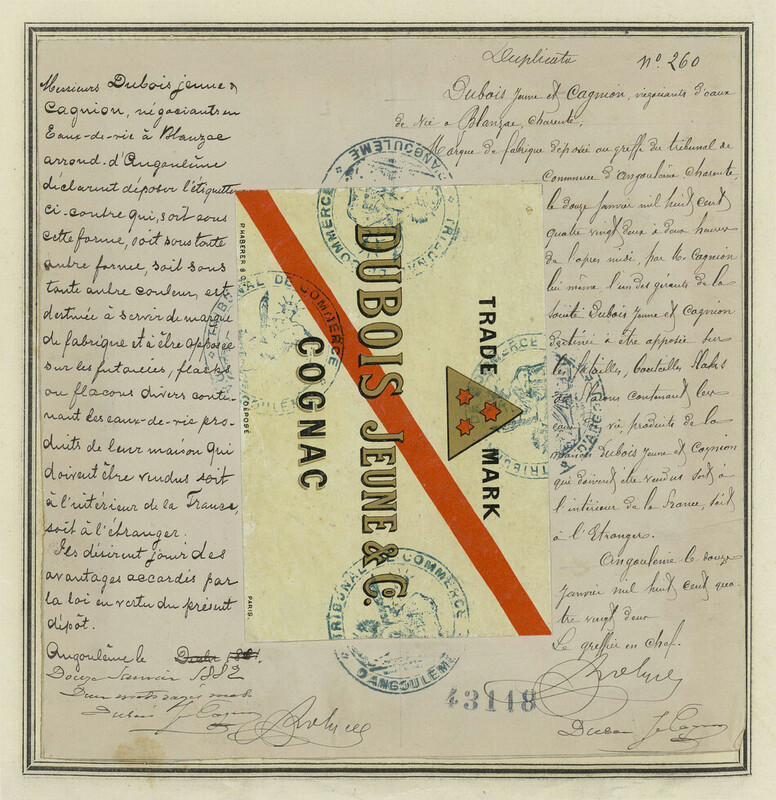 Messieurs Dubois jeune &
Cagnion, négociants en
Eaux-de-vie à Blanzac
arrond. d'Angoulême
déclarent déposer l'étiquette
ci-contre qui, soit sous
cette forme, soit sous toute
autre forme, soit sous
toute autre couleur, est
destinée à servir de marque
de fabrique et à être apposée
sur les futailles, flacks
ou flacons divers conte-
nant les eaux-de-vie pro-
duits de leur maison qui
doivent être vendus soit
à l'intérieur de la France,
soit à l'étranger.
Ils désirent jouir des
avantages accordés par
la loi en vertu du présent
dépôt.
Angoulême le
Douze Janvier 1882
Deux mots rayés nuls
Dubois Je Cagnion
Duplicata
No. 260
Dubois Jeune et Cagnion, négociants d'eaux
de Vie à Blanzac, Charente.
Marque de fabrique déposée au greffe du tribunal de
Commerce d'Angoulême Charente,
le douze Janvier mil huit cent
quatre vingt deux à deux heures
de l'après midi, par M. Cagnion
lui même l'un des gérants de la
société Dubois Jeune et Cagnion
destinée à être apposée sur
les futailles, bouteilles flaks
flacons contenant les
eaux vie produits de la
maison Dubois Jeune et Cagnion
qui doivent être vendus soit à
l'intérieur de la France, soit
à l'Etranger.
Angoulême le douze
Janvier mil huit cent qua-
tre vingt deux
Le greffier en chef.
Dubois Je Cagnion
TRADE MARK
DUBOIS JEUNE & Co.
COGNAC
P. HABERER & C
DÉPOSÉ
PARIS.
TRIBUNAL DE COMMERCE
D'ANGOULÊME
TRIBUNAL DE COMMERCE
D'ANGOULÊME
TRIBUNAL DE COMMERCE
D'ANGOULÊME
43118